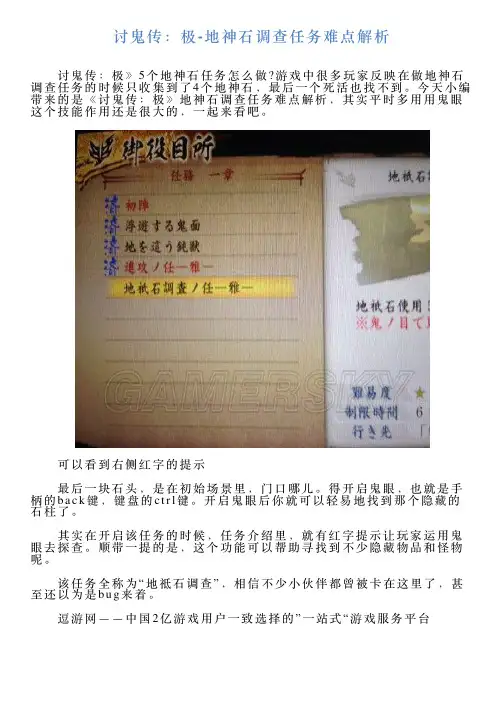 讨鬼传：极-地神石调查任务难点解析
讨鬼传：极》5个地神石任务怎么做?游戏中很多玩家反映在做地神石
调查任务的时候只收集到了4个地神石，最后一个死活也找不到。今天小编
带来的是《讨鬼传：极》地神石调查任务难点解析，其实平时多用用鬼眼
这个技能作用还是很大的，一起来看吧。
御役目所
任務　一章
初陣
浮遊する鬼面
地を這う鈍獣
進攻ノ任―雅―
地祇石調査ノ任―雅―
地祇石
地祇石使用
※鬼ノ目で
難易度 ★
制限時間 6
行き先 「
GAMERSKY
可以看到右侧红字的提示
最后一块石头，是在初始场景里，门口哪儿。得开启鬼眼，也就是手
柄的back键，键盘的ctrl键。开启鬼眼后你就可以轻易地找到那个隐藏的
石柱了。
其实在开启该任务的时候，任务介绍里，就有红字提示让玩家运用鬼
眼去探查。顺带一提的是，这个功能可以帮助寻找到不少隐藏物品和怪物
呢。
该任务全称为“地祗石调查”，相信不少小伙伴都曾被卡在这里了，甚
至还以为是bug来着。
逗游网——中国2亿游戏用户一致选择的”一站式“游戏服务平台